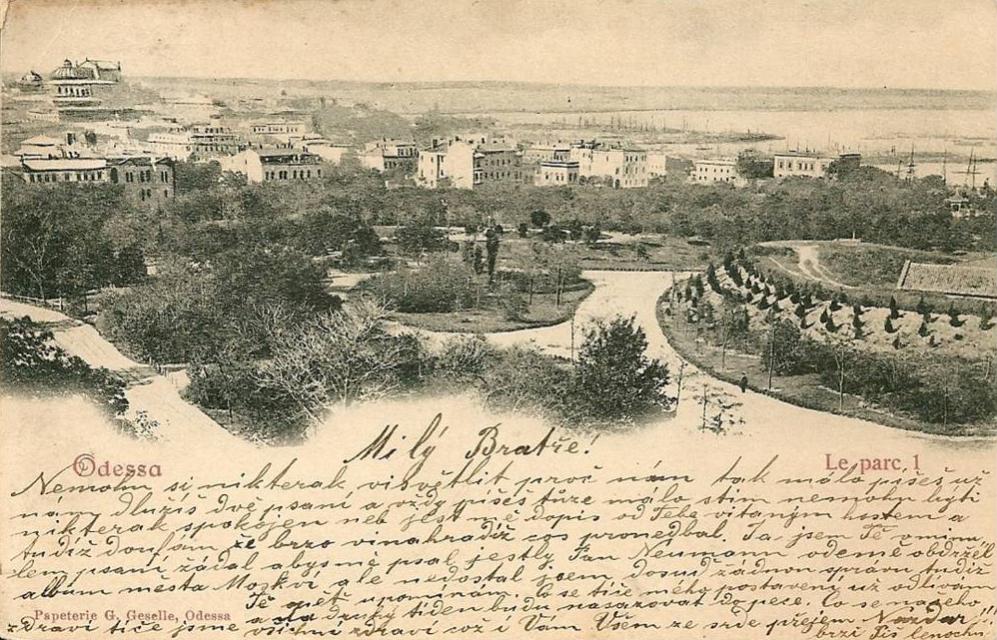 Milý Bratře!
Odessa
Le parc 1
Nemohu si nikterak visvětlit proč nám tak málo píšeš už
nám dlužíš dvě psaní a vždy píšeš túze málo stim nemohu býti
nikterak spokojen neb jest mě dopis od Tebe vítaným hostem a
tudíž doufám že brzo vinahradíž cos pronedbal. Ja jsem Tě v mim
lem psaní žádal abys mě psal jestly Pan Neumann odemě obdržel
album města Moskvi ale nedostal jsem dosud žádnou správu tudíž
Tě opět upomínám. Co se tiče mého postavení už odlívám
a za druhý tíden budu nasazovat do pece. Co se našeho
Papeterie G. Geselle, Odessa
zdraví tiče jsme všichni zdraví což i Vám Všem ze srde přejem Nazdar!!